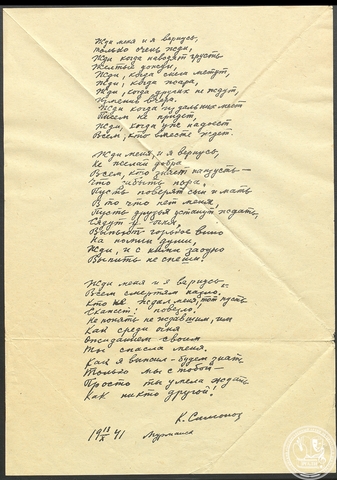 Жди меня и я вернусь,
Только очень жди,
Жди когда наводят грусть
Желтые дожди,
Жди, когда снега метут,
Жди, когда жара,
Жди, когда других не ждут,
Изменив вчера.
Жди когда из дальних мест
Писем не придет,
Жди, когда уж надоест
Всем, кто вместе ждет.
Жди меня, и я вернусь,
Не желай добра
Всем, кто знает наизусть —
Что забыть пора.
Пусть поверят сын и мать
В то что нет меня,
Пусть друзья устанут ждать,
Сядут у огня,
Выпьют горькое вино
На помин души,
Жди, и с ними заодно
Выпить не спеши
Жди меня и я вернусь
Всем смертям назло.
Кто не ждал меня, тот пусть
Скажет: повезло.
Не понять не ждавшим, им
Как среди огня
Ожиданием своим
Ты спасла меня.
Как я выжил — будем знать
Только мы с тобой —
Просто ты умела ждать
Как никто другой!
К. Симонов
19 13/X 41 Мурманск